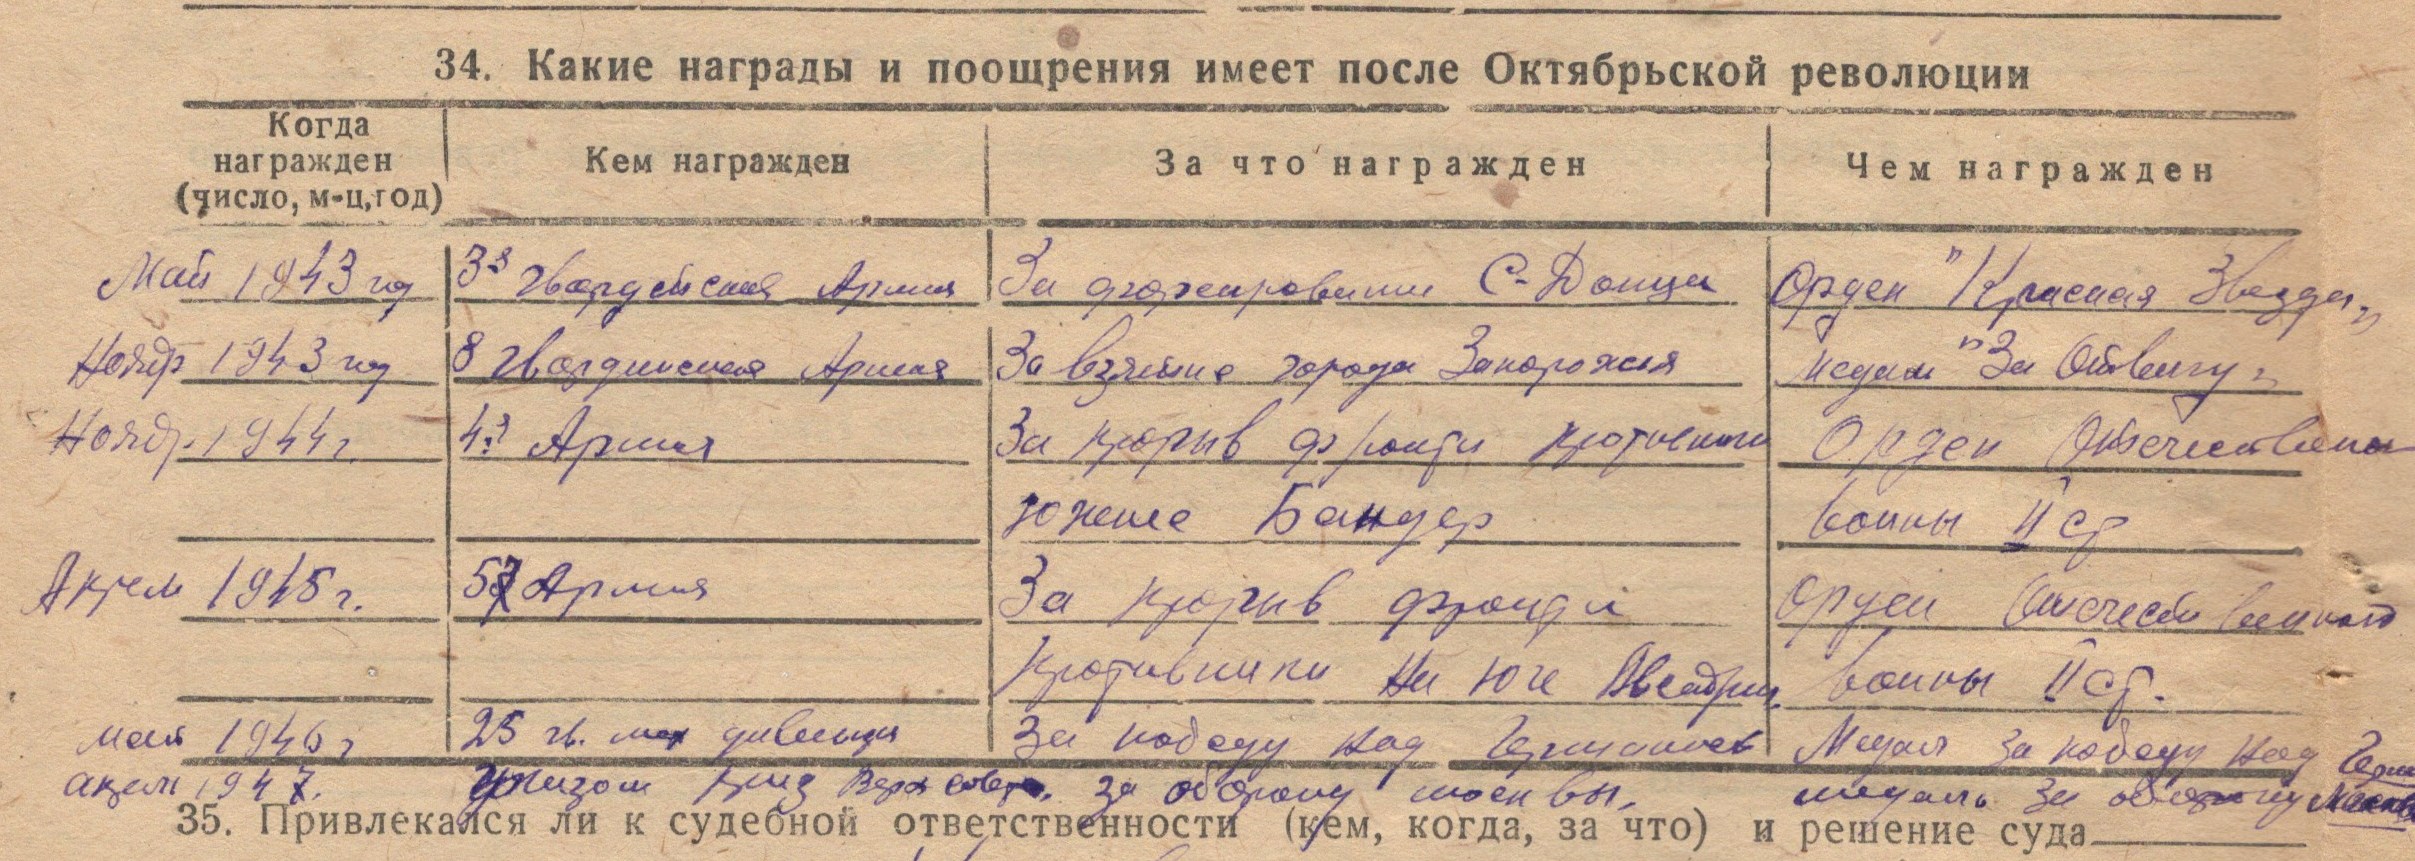 34. Какие награды и поощрения имеет после Октябрьской революции
Когда награжден (число, м-ц, год) Кем награжден За что награжден Чем награжден
Май 1943 год 3я гвардейская Армия За форсирование С-Донца Орден "Красная Звезда"
Ноябр 1943 год 8 гвардейская Армия За взятие города Запорожья медаль "За Отвагу"
Ноябр. 1944 г. 4я Армия За прорыв фронта противника Орден Отечествено
южнее Бандер войны II ст
Апрел 1945 г. 57 Армия За прорыв фронта Орден Отечественной
противника на юге Австрии. войны II ст.
май 1946 г 25 гв. мех дивизия За победу над Германией Медал за победу над Герм
апрел 1947. Указом през Верх совета. За оборону москвы. медаль за оборону Москвы
35. Привлекался ли к судебной ответственности (кем, когда, за что) и решение суда